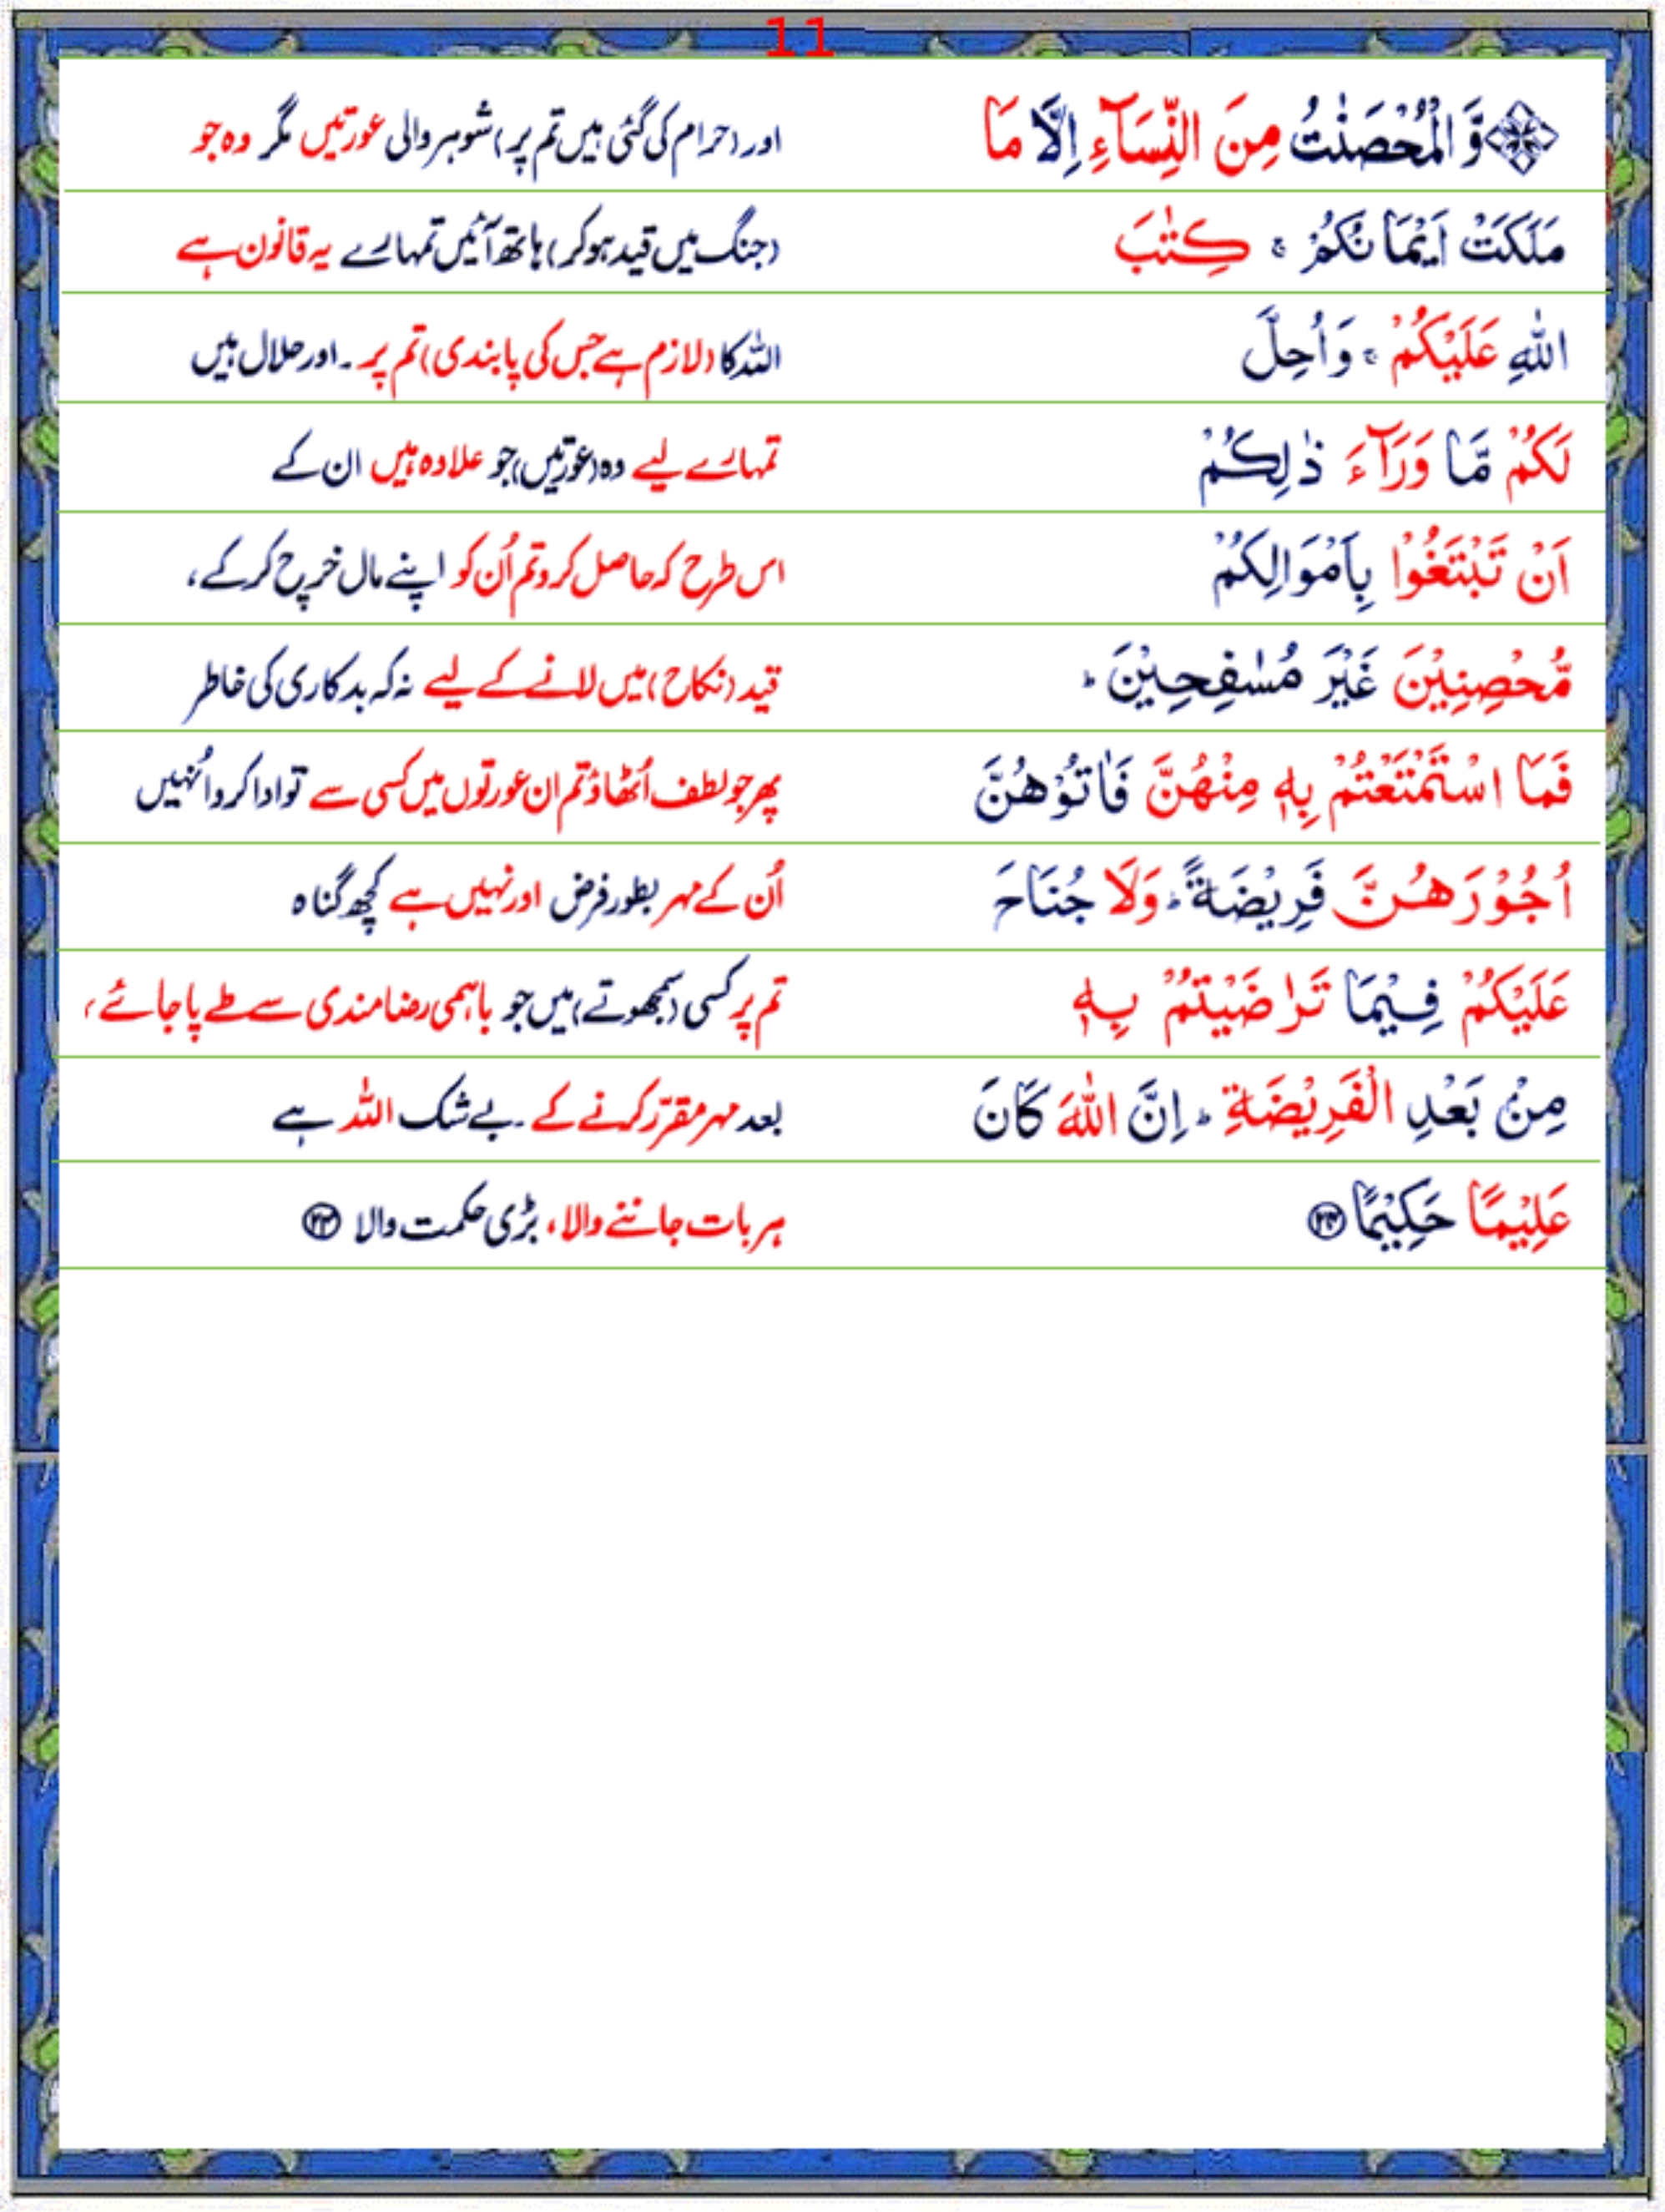 11
وَّ الْمُحْصَنٰتُ مِنَ النِّسَآءِ اِلَّا مَا اور (حرام کی گئی ہیں تم پر) شوہر والی عورتیں مگر وہ جو
مَلَكَتْ اَيْمَانُكُمْ ۚ كِتٰبَ (جنگ میں قید ہوکر) ہاتھ آئیں تمہارے یہ قانون ہے
اللّٰهِ عَلَيْكُمْ ۚ وَاُحِلَّ اللہ کا (لازم ہے جس کی پابندی) تم پر ۔ اور حلال ہیں
لَكُمْ مَّا وَرَآءَ ذٰلِكُمْ تمہارے لیے وہ (عورتیں) جو علاوہ ہیں ان کے
اَنْ تَبْتَغُوْا بِاَمْوَالِكُمْ اس طرح کہ حاصل کرو تم اُن کو اپنے مال خرچ کرکے،
مُّحْصِنِيْنَ غَيْرَ مُسٰفِحِيْنَ ؕ قید (نکاح) میں لانے کے لیے نہ کہ بدکاری کی خاطر
فَمَا اسْتَمْتَعْتُمْ بِهٖ مِنْهُنَّ فَاٰتُوْهُنَّ پھر جو لطف اُٹھاؤ تم ان عورتوں میں کسی سے تو ادا کرو اُنہیں
اُجُوْرَهُنَّ فَرِيْضَةً ؕ وَلَا جُنَاحَ اُن کے مہر بطور فرض اور نہیں ہے کچھ گناہ
عَلَيْكُمْ فِيْمَا تَرٰضَيْتُمْ بِهٖ تم پر کسی (سمجھوتے) میں جو باہمی رضامندی سے طے پا جائے،
مِنْۢ بَعْدِ الْفَرِيْضَةِ ؕ اِنَّ اللّٰهَ كَانَ بعد مہر مقرّر کرنے کے ۔ بے شک اللہ ہے
عَلِيْمًا حَكِيْمًا ۲۴ ہر بات جاننے والا، بڑی حکمت والا